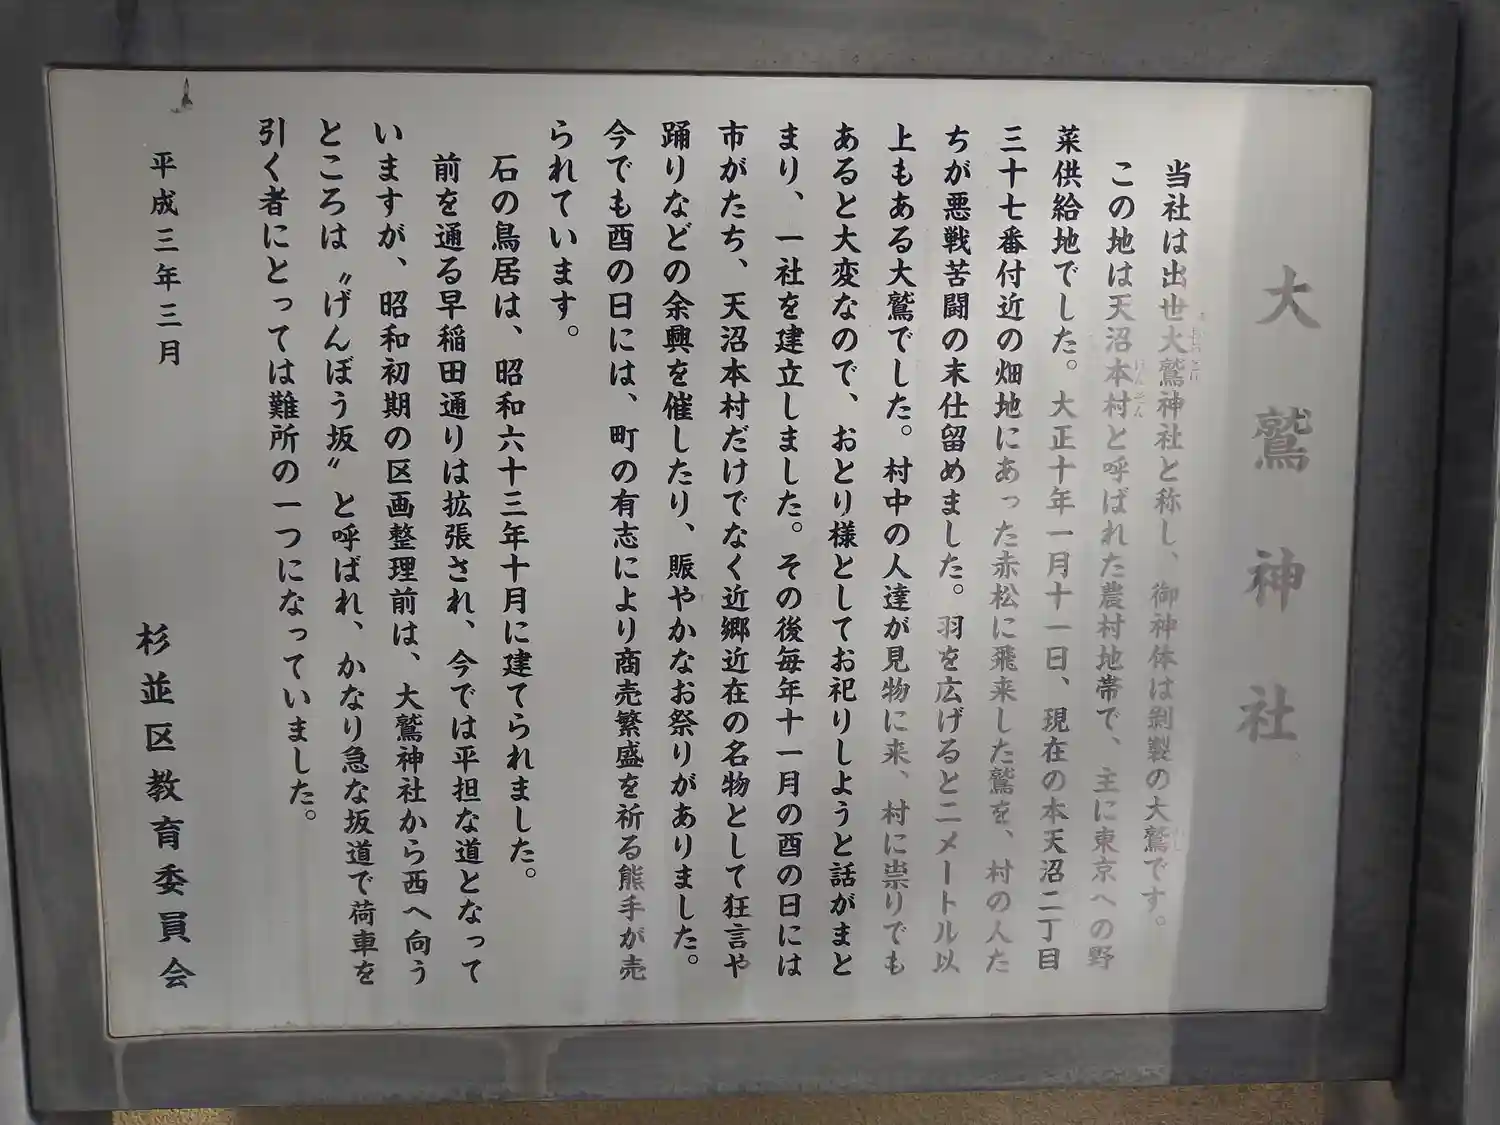 大鷲神社
当社は出世大鷲神社と称し、御神体は剥製の大鷲です。
この地は天沼本村と呼ばれた農村地帯で、主に東京への野
菜供給地でした。大正十年一月十一日、現在の本天沼二丁目
三十七番付近の畑地にあった赤松に飛来した鷲を、村の人た
ちが悪戦苦闘の末仕留めました。羽を広げると二メートル以
上もある大鷲でした。村中の人達が見物に来、村に祟りでも
あると大変なので、おとり様としてお祀りしようと話がまと
まり、一社を建立しました。その後毎年十一月の酉の日には
市がたち、天沼本村だけでなく近郷近在の名物として狂言や
踊りなどの余興を催したり、賑やかなお祭りがありました。
今でも酉の日には、町の有志により商売繁盛を祈る熊手が売
られています。
石の鳥居は、昭和六十三年十月に建てられました。
前を通る早稲田通りは拡張され、今では平担な道となって
いますが、昭和初期の区画整理前は、大鷲神社から西へ向う
ところは〝げんぼう坂〟と呼ばれ、かなり急な坂道で荷車を
引く者にとっては難所の一つになっていました。
平成三年三月
杉並区教育委員会